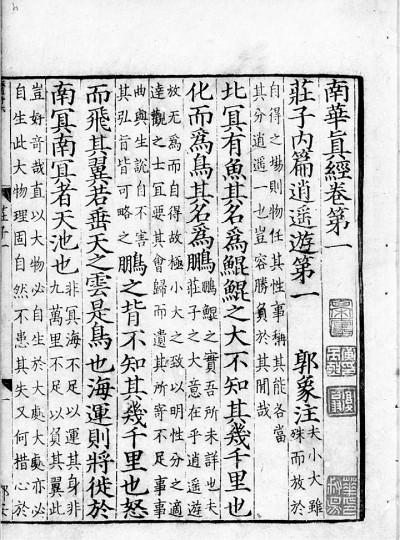 南華眞經卷第一
莊子內篇逍遥遊第一　郭象注 夫小大雖
殊而放於
自得之場則物任其性事稱其能各當
其分逍遥一也豈容勝負於其閒哉
北冥有魚其名爲鯤鯤之大不知其幾千里也
化而爲鳥其名爲鵬 鵬鯤之實吾所未詳也夫
莊子之大意在乎逍遥遊
放無爲而自得故極小大之致以明性分之適
達觀之士宜要其會歸而遺其所寄不足事事
曲與生說自不害
其弘旨皆可略之 鵬之背不知其幾千里也怒
而飛其翼若垂天之雲是鳥也海運則將徙於
南冥南冥者天池也 非冥海不足以運其身非
九萬里不足以負其翼此
豈好奇哉直以大物必自生於大處大處亦必
自生此大物理固自然不患其失又何措心於